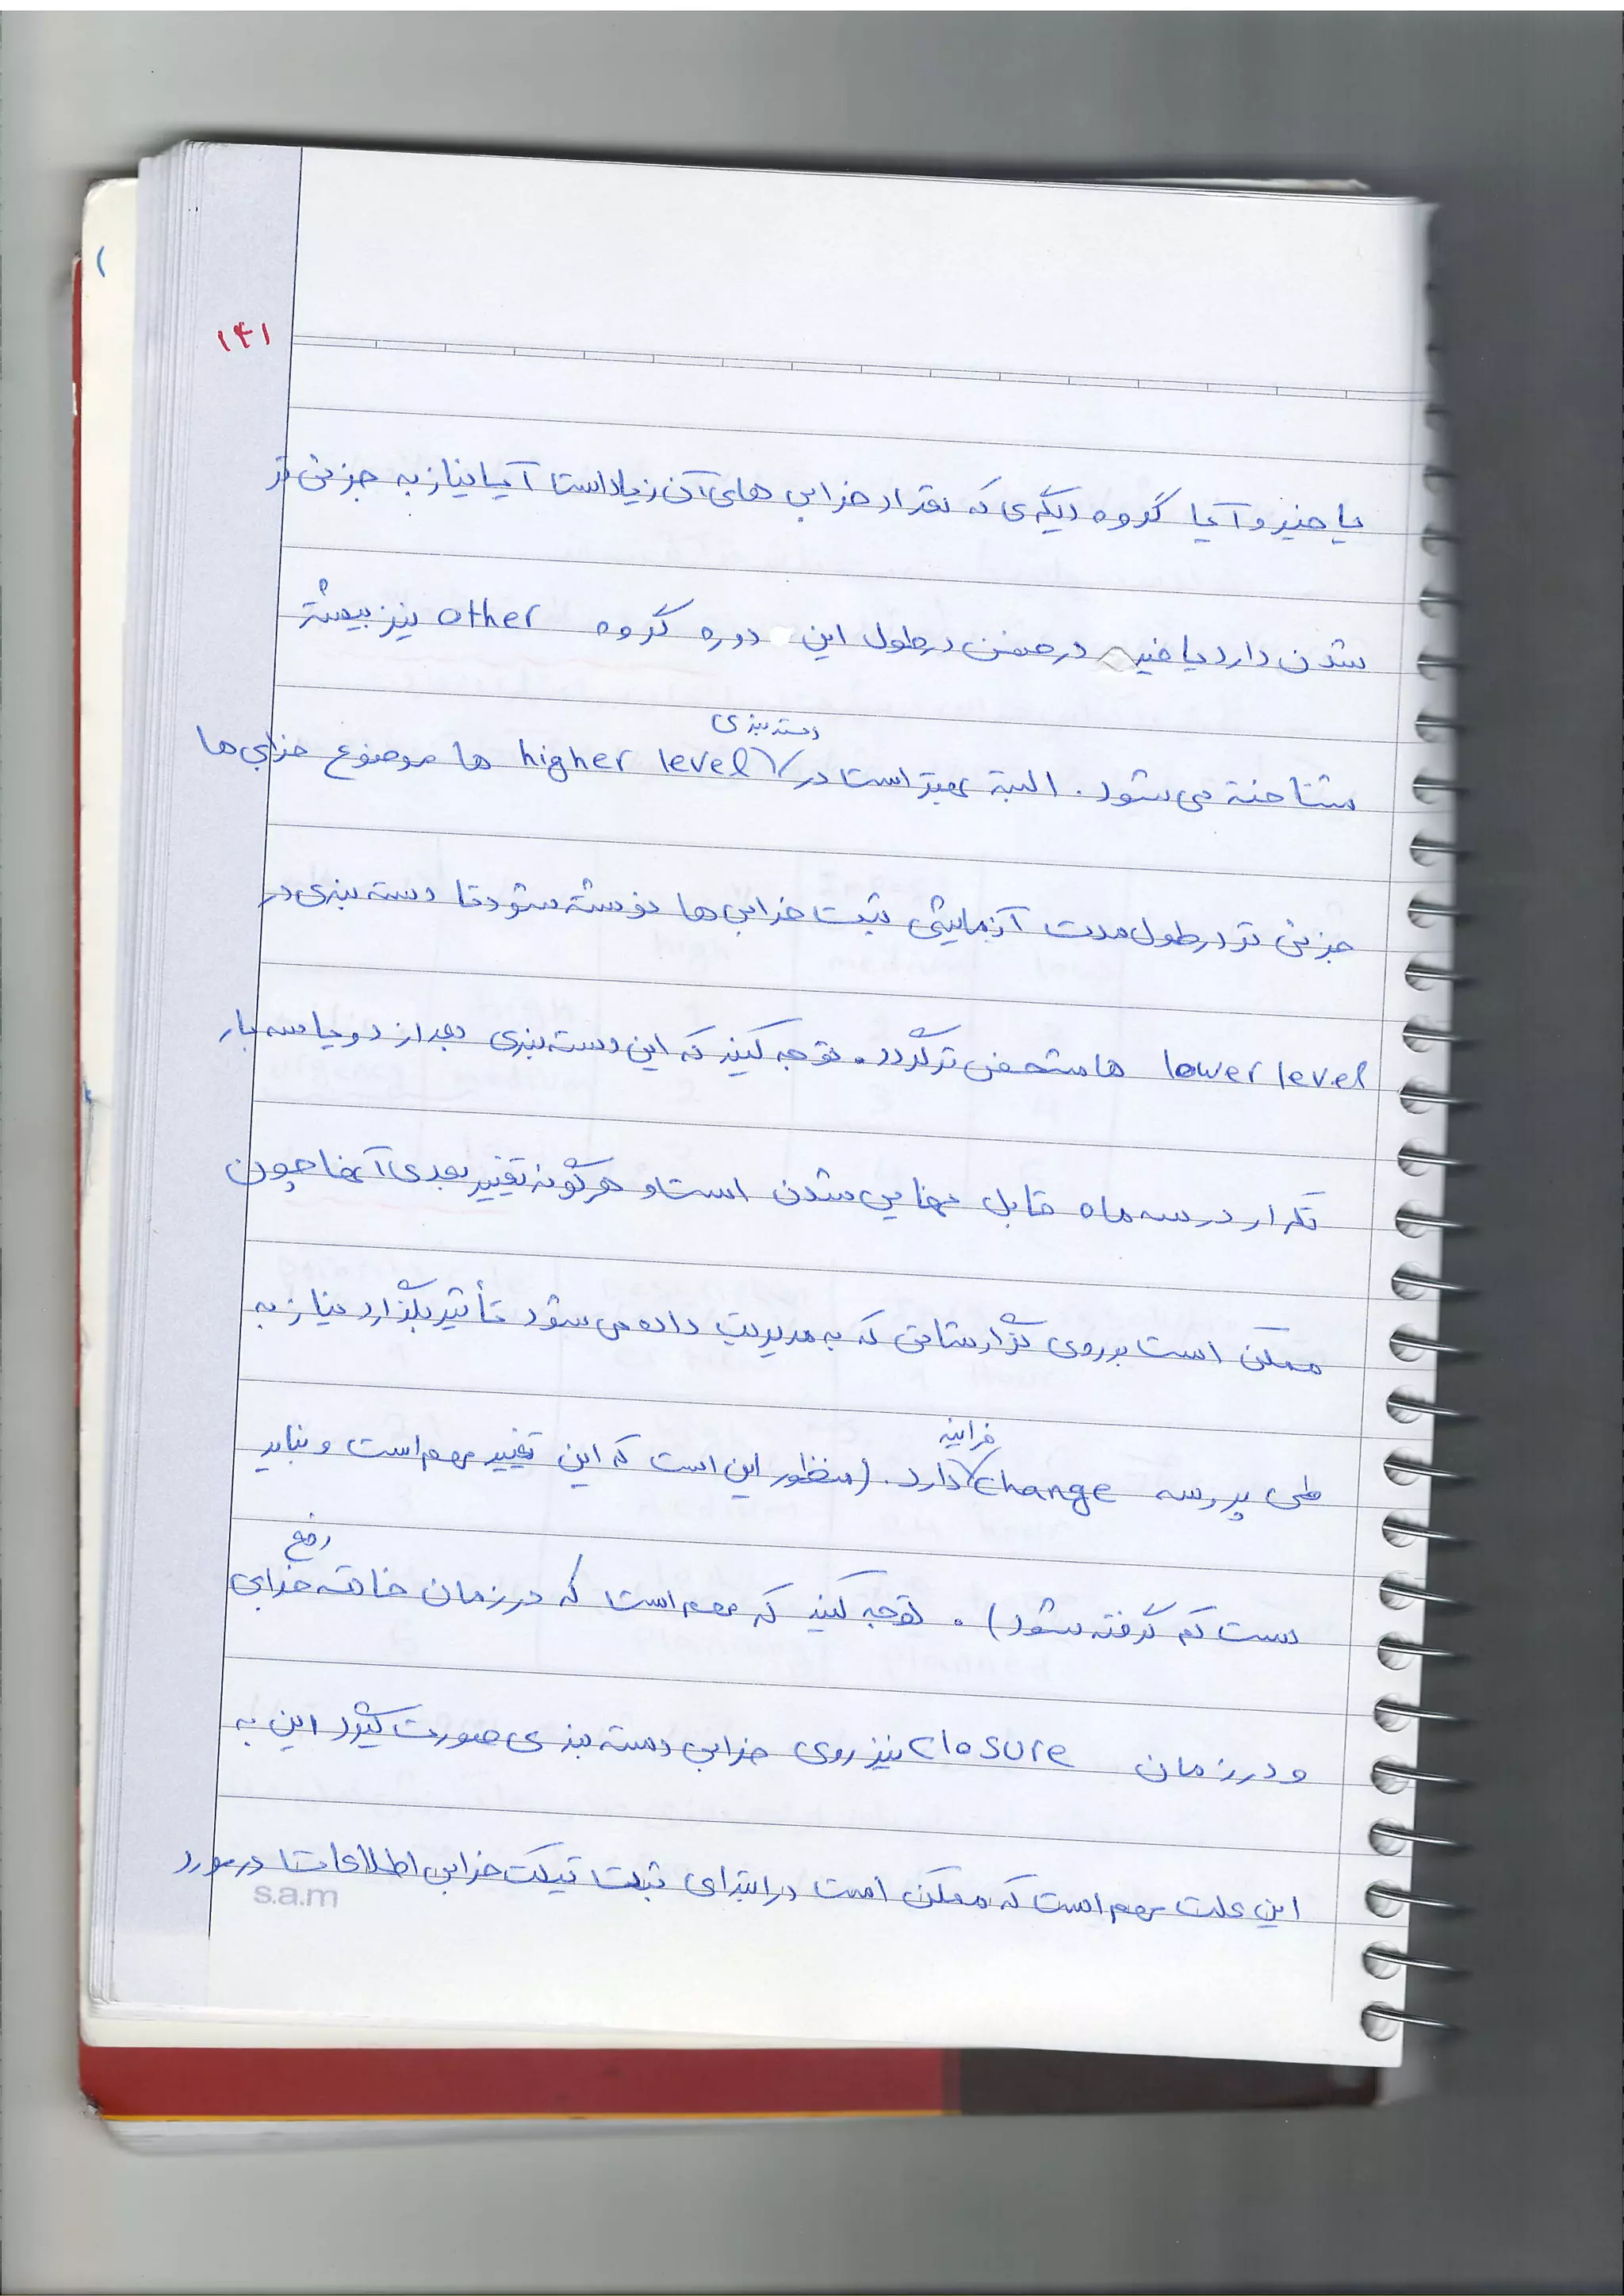 ۱۴۱
یا خیر و آیا گروه دیگری که تعداد خرابی های آن زیاد است آیا نیاز به جزئی تر
شدن دارد یا خیر در ضمن در طول این دوره گروه other نیز بیشتر
دسته بندی
شناخته می شود. البته بهتر است در higher level ها موضوع خرابی ها
جزئی تر در طول مدت آزمایشی ثبت خرابی ها نوشته شود تا دسته بندی در
lower level ها مشخص تر گردد. توجه کنید که این دسته بندی بعد از دو یا سه بار
تکرار در سه ماه قابل نهایی شدن است و هرگونه تغییر بعدی آنها چون
ممکن است بر روی گزارشاتی که به مدیریت داده می شود تأثیر بگذارد نیاز به
فرایند
طی پروسه change دارد. (منظور این است که این تغییر مهم است و نباید
دست کم گرفته شود). توجه کنید که مهم است که در زمان خاتمه خرابی
رفع
و در زمان closure نیز روی خرابی دسته بندی صورت گیرد این به
این علت مهم است که ممکن است در ابتدای ثبت تیکت خرابی اطلاعات در مورد
s.a.m